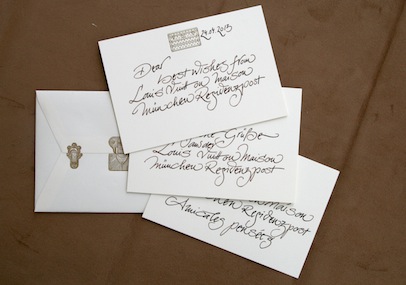 24.04.2013
Dear
best wishes from
Louis Vuitton Maison
München Residenzpost
Grüße
aus der
Louis Vuitton Maison
München Residenzpost
Maison
München Residenzpost